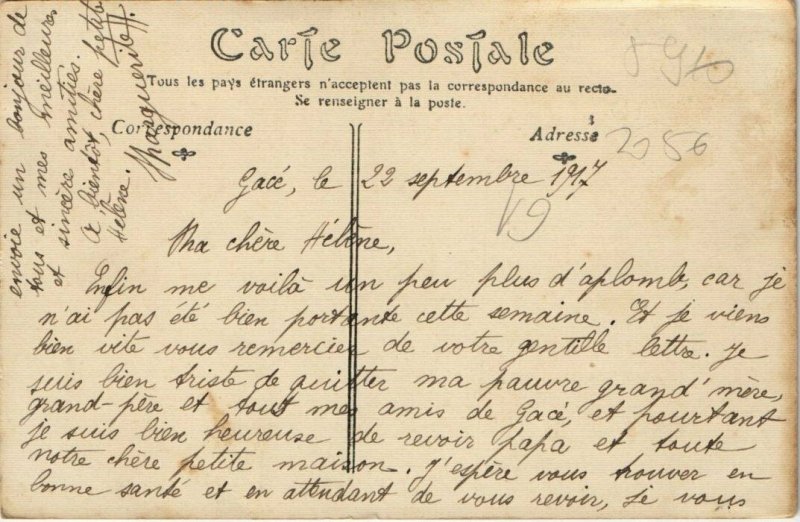 Carte Postale
Tous les pays étrangers n'acceptent pas la correspondance au recto.
Se renseigner à la poste.
Correspondance
Adresse
8940
2056
Gacé, le 22 septembre 1917
19
Ma chère Hélène,
Enfin me voilà un peu plus d'aplomb, car je
n'ai pas été bien portante cette semaine. Et je viens
bien vite vous remercier de votre gentille lettre. Je
suis bien triste de quitter ma pauvre grand'mère,
grand-père et tout mes amis de Gacé, et pourtant
je suis bien heureuse de revoir papa et toute
notre chère petite maison. J'espère vous trouver en
bonne santé et en attendant de vous revoir, je vous
envoie un bonjour de
tous et mes meilleurs
et sincère amitiés.
A bientôt, chère petite
Hélène.
Marguerite H.